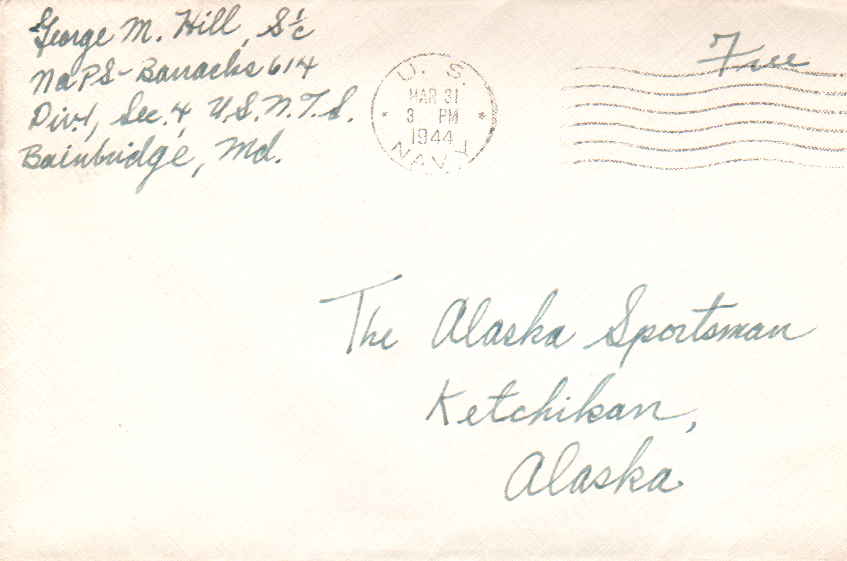 George M. Hill, S 1/c
NaPS - Barracks 614
Div. 1, Sec. 4, U.S.N.T.S.
Bainbridge, Md.
U. S.
MAR 31
3 PM
1944
NAVY
Free
The Alaska Sportsman
Ketchikan,
Alaska